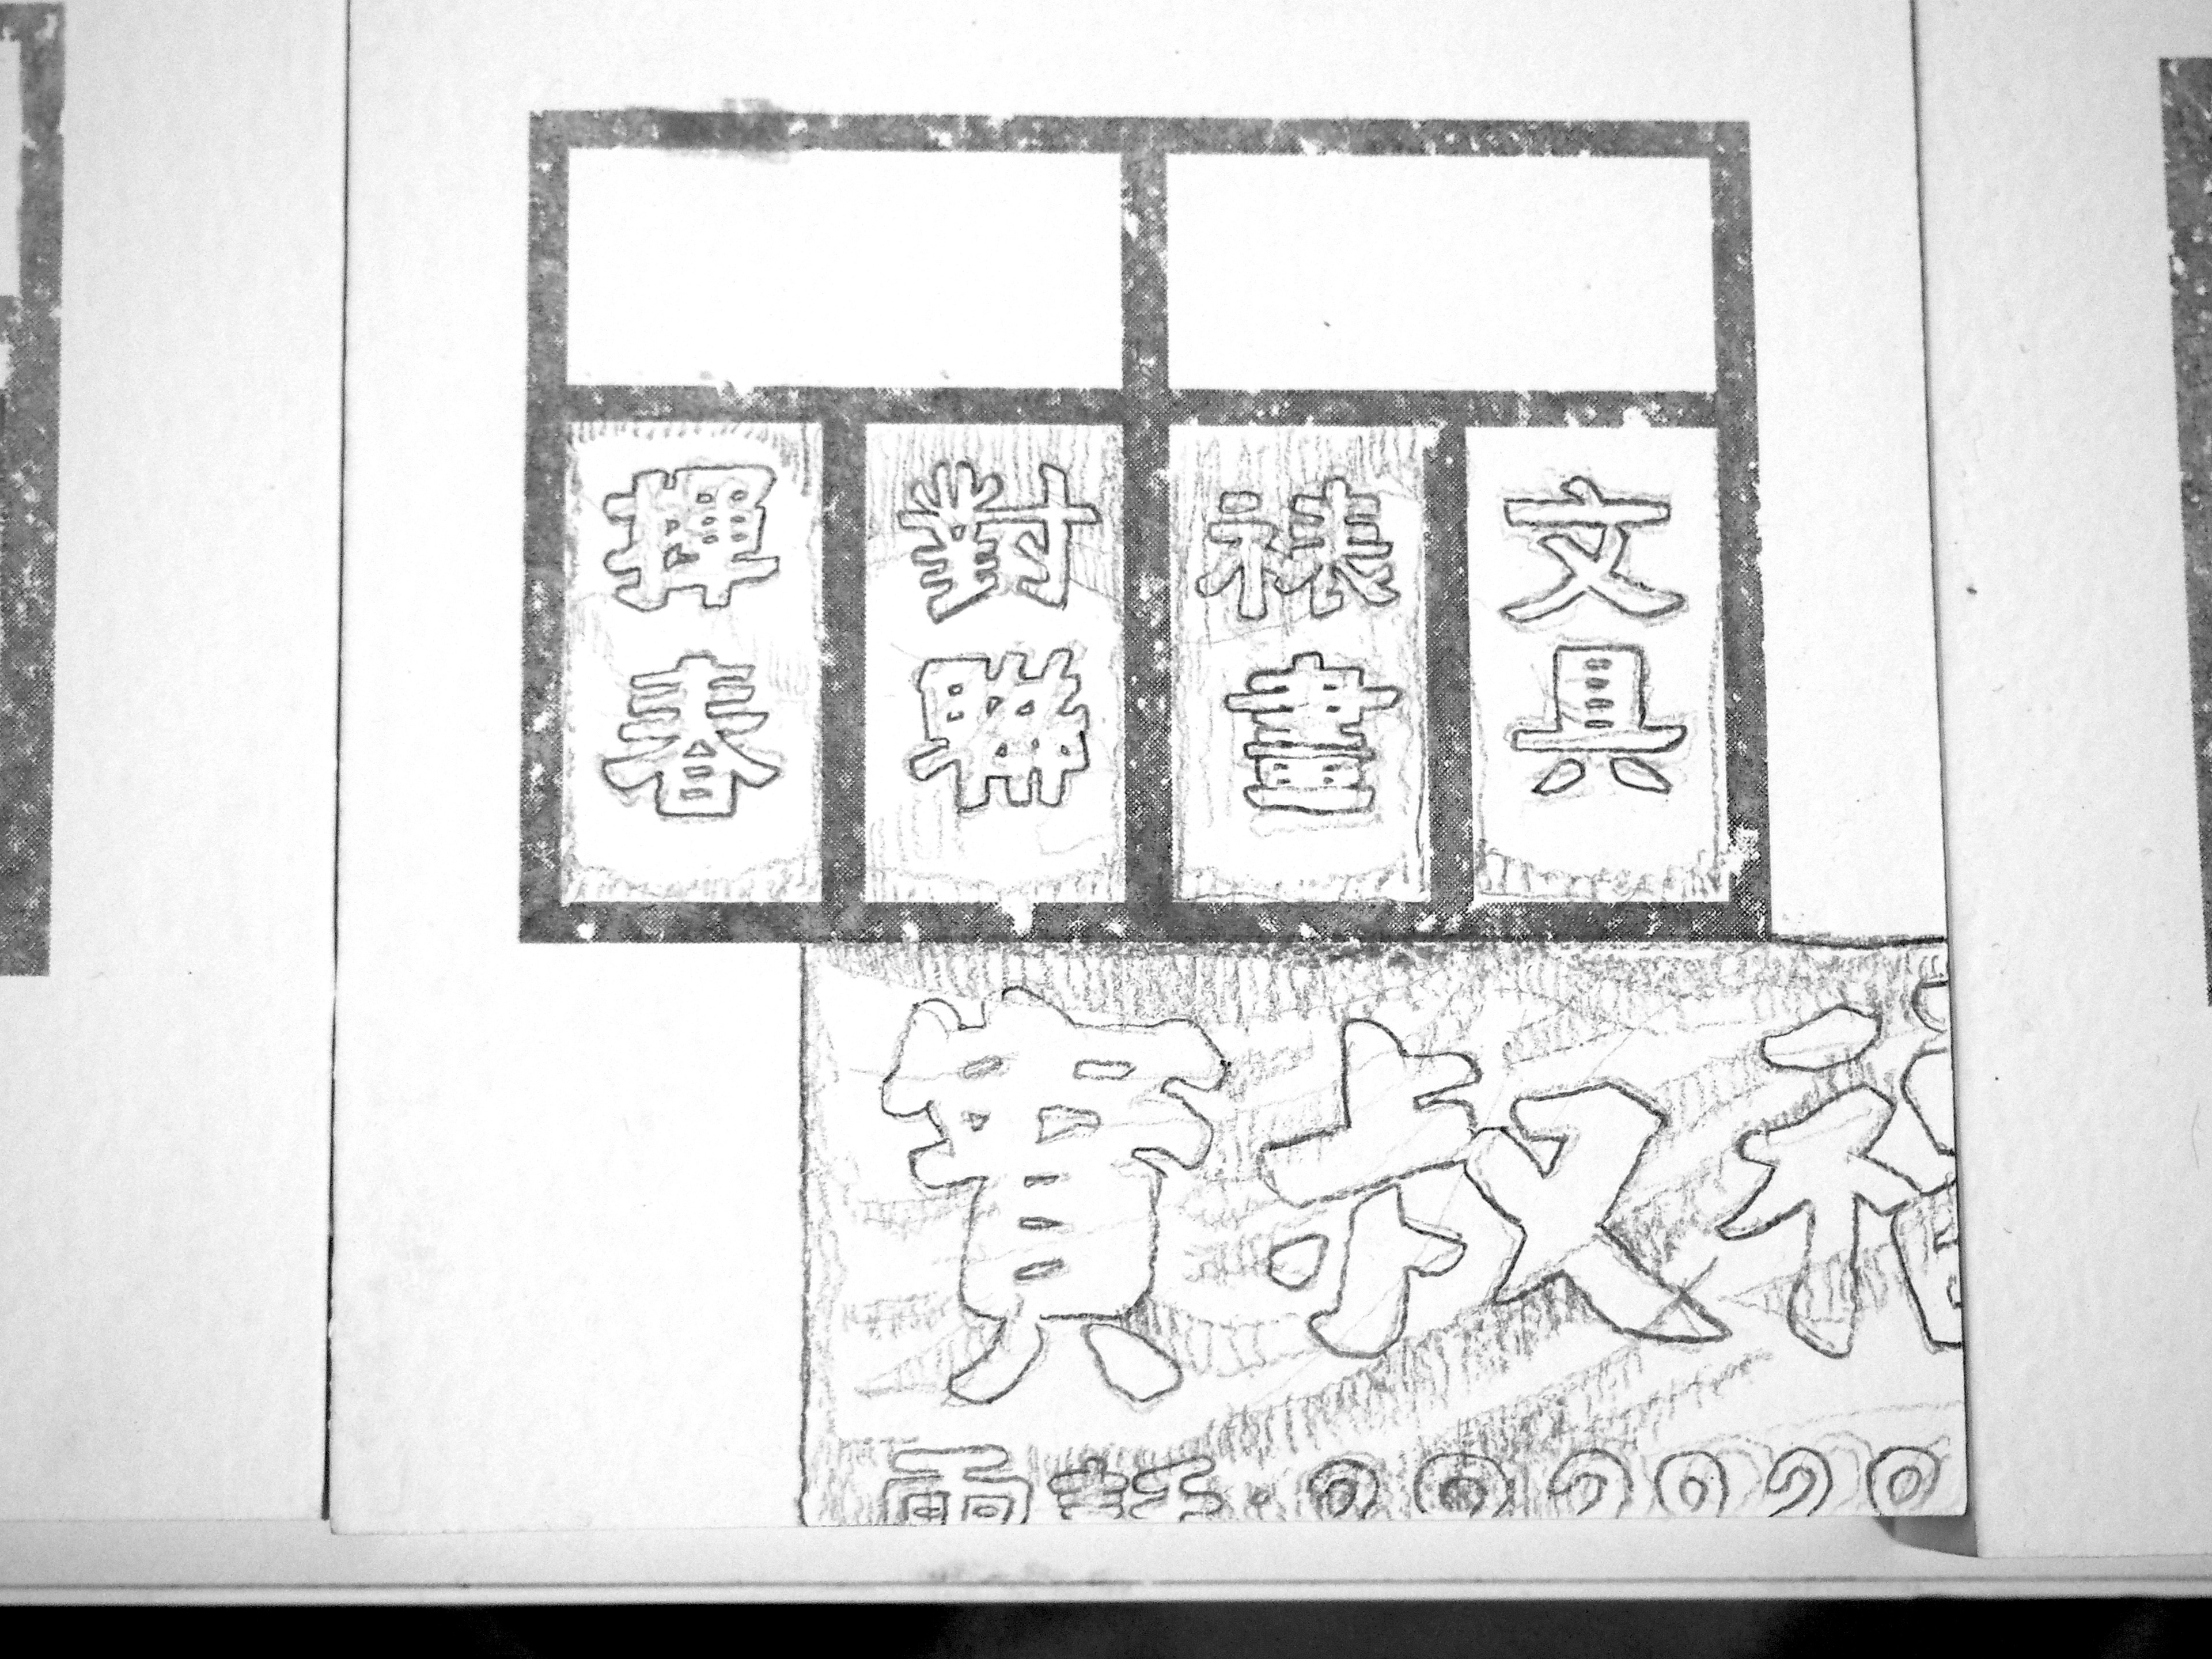 揮春
對聯
裱畫
文具
實叔
電話